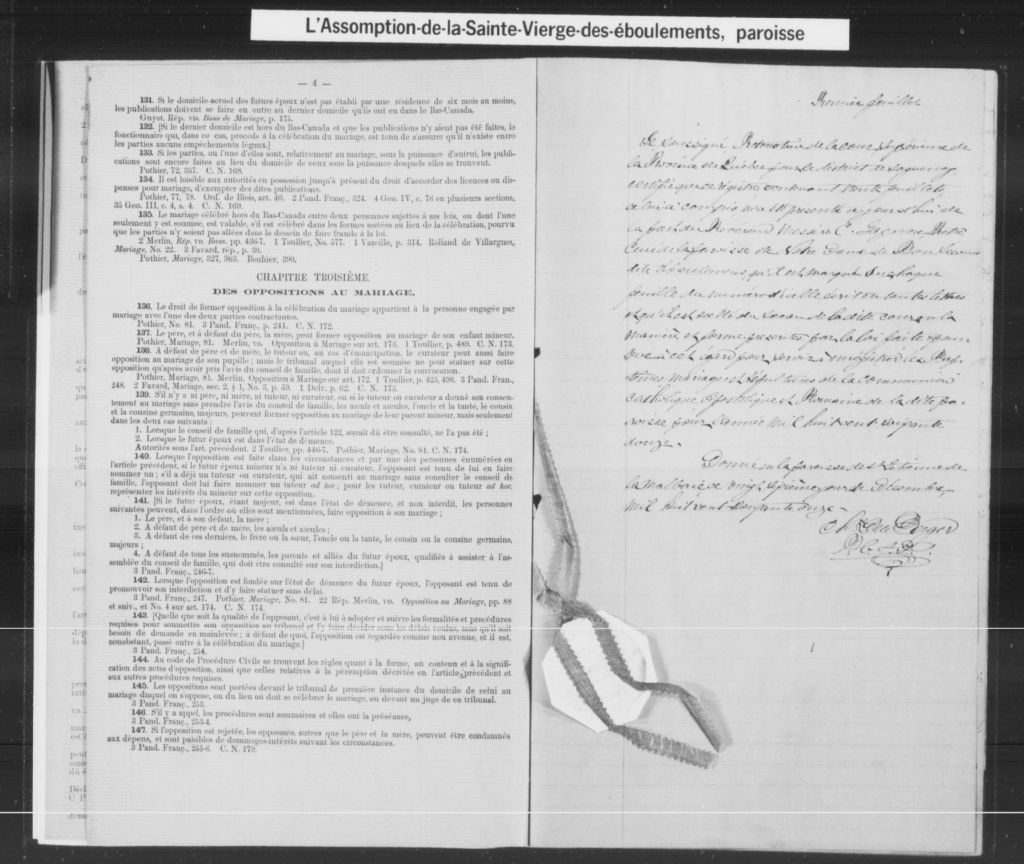 L'Assomption-de-la-Sainte-Vierge-des-éboulements, paroisse
— 4 —
131. Si le domicile actuel des futurs époux n'est pas établi par une résidence de six mois au moins,
les publications doivent se faire en outre au dernier domicile qu'ils ont eu dans le Bas-Canada.
Guyot, Rép. vis. Bans de Mariage, p. 175.
132. [Si le dernier domicile est hors du Bas-Canada et que les publications n'y aient pas été faites, le
fonctionnaire qui, dans ce cas, procède à la célébration du mariage, est tenu de s'assurer qu'il n'existe entre
les parties aucuns empêchements légaux.]
133. Si les parties, ou l'une d'elles sont, relativement au mariage, sous la puissance d'autrui, les publi-
cations sont encore faites au lieu du domicile de ceux sous la puissance desquels elles se trouvent.
Pothier, 72, 357. C. N. 168.
134. Il est loisible aux autorités en possession jusqu'à présent du droit d'accorder des licences ou dis-
penses pour mariage, d'exempter des dites publications.
Pothier, 77, 78. Ord. de Blois, art. 40. 2 Pand. Franç., 324. 4 Geo. IV, c. 76 en plusieurs sections,
35 Geo. III, c. 4, s. 4. C. N. 169.
135. Le mariage célébré hors du Bas-Canada entre deux personnes sujettes à ses lois, ou dont l'une
seulement y est soumise, est valable, s'il est célébré dans les formes usitées au lieu de la célébration, pourvu
que les parties n'y soient pas allées dans le dessein de faire fraude à la loi.
2 Merlin, Rép. vo. Bans, pp. 496-7. 1 Toullier, No. 577. 1 Vazeille, p. 314. Rolland de Villargues,
Mariage, No. 22. 3 Favard, rép., p. 30.
Pothier, Mariage, 327, 363. Bouhier, 390.
CHAPITRE TROISIÈME.
DES OPPOSITIONS AU MARIAGE.
136. Le droit de former opposition à la célébration du mariage appartient à la personne engagée par
mariage avec l'une des deux parties contractantes.
Pothier, No. 81. 3 Pand. Franç., p. 241. C. N. 172.
137. Le père, et à défaut du père, la mère, peut former opposition au mariage de son enfant mineur.
Pothier, Mariage, 81. Merlin, vo. Opposition à Mariage sur art. 173. 1 Toullier, p. 489. C. N. 173.
138. A défaut de père et de mère, le tuteur ou, au cas d'émancipation, le curateur peut aussi faire
opposition au mariage de son pupille; mais le tribunal auquel elle est soumise ne peut statuer sur cette
opposition qu'après avoir pris l'avis du conseil de famille, dont il doit ordonner la convocation.
Pothier, Mariage, 81. Merlin, Opposition à Mariage sur art. 172. 1 Toullier, p. 425, 490. 3 Pand. Fran.,
248. 2 Favard, Mariage, sec. 2, § 1, No. 3, p. 59. 1 Delv, p. 62. C. N. 175.
139. S'il n'y a ni père, ni mère, ni tuteur, ni curateur, ou si le tuteur ou curateur a donné son consen-
tement au mariage sans prendre l'avis du conseil de famille, les aïeuls et aïeules, l'oncle et la tante, le cousin
et la cousine germains, majeurs, peuvent former opposition au mariage de leur parent mineur, mais seulement
dans les deux cas suivants:
1. Lorsque le conseil de famille qui, d'après l'article 122, aurait dû être consulté, ne l'a pas été;
2. Lorsque le futur époux est dans l'état de démence.
Autorités sous l'art. précédent. 2 Toullier, pp. 446-7. Pothier, Mariage, No. 81. C. N. 174.
140. Lorsque l'opposition est faite dans les circonstances et par une des personnes énumérées en
l'article précédent, si le futur époux mineur n'a ni tuteur ni curateur, l'opposant est tenu de lui en faire
nommer un; s'il a déjà un tuteur ou curateur, qui ait consenti au mariage sans consulter le conseil de
famille, l'opposant doit lui faire nommer un tuteur ad hoc; pour les tuteur, curateur ou tuteur ad hoc,
représenter les intérêts du mineur sur cette opposition.
141. [Si le futur époux, étant majeur, est dans l'état de démence, et non interdit, les personnes
suivantes peuvent, dans l'ordre où elles sont mentionnées, faire opposition à son mariage;
1. Le père, et à son défaut, la mère;
2. A défaut de père et de mère, les aïeuls et aïeules;
3. A défaut de ces derniers, le frère ou la sœur, l'oncle ou la tante, le cousin ou la cousine germains,
majeurs;
4. A défaut de tous les susnommés, les parents et alliés du futur époux, qualifiés à assister à l'as-
semblée du conseil de famille, qui doit être consulté sur son interdiction.]
3 Pand. Franç., 246-7.
142. Lorsque l'opposition est fondée sur l'état de démence du futur époux, l'opposant est tenu de
promouvoir son interdiction et d'y faire statuer sans délai.
3 Pand. Franç., 247. Pothier, Mariage, No. 81. 22 Rép. Merlin, vo. Opposition au Mariage, pp. 88
et suiv., et No. 4 sur art. 174. C. N. 174.
143. [Quelle que soit la qualité de l'opposant, c'est à lui à adopter et suivre les formalités et procédures
requises pour soumettre son opposition au tribunal et l'y faire décider sous les délais voulus, sans qu'il soit
besoin de demande en mainlevée; à défaut de quoi, l'opposition est regardée comme non avenue, et il est,
nonobstant, passé outre à la célébration du mariage.]
3 Pand. Franç., 254.
144. Au code de Procédure Civile se trouvent les règles quant à la forme, au contenu et à la signifi-
cation des actes d'opposition, ainsi que celles relatives à la péremption décrétée en l'article précédent et
aux autres procédures requises.
145. Les oppositions sont portées devant le tribunal de première instance du domicile de celui au
mariage duquel on s'oppose, ou du lieu où doit se célébrer le mariage, ou devant un juge de ce tribunal.
3 Pand. Franç., 253.
146. S'il y a appel, les procédures sont sommaires et elles ont la préséance,
3 Pand. Franç., 253-4.
147. Si l'opposition est rejetée, les opposants, autres que le père et la mère, peuvent être condamnés
aux dépens, et sont passibles de dommages-intérêts suivant les circonstances.
3 Pand. Franç., 255-6. C. N. 179.
Premier feuillet
Je soussigné Protonotaire de la cour Supérieure de
la Province de Québec pour le district de Saguenay
certifie que ce régistre contenant trente feuillets
celui-ci compris m'a été présenté aujourd'hui de
la part du Révérend Messire C. Prêtre
Curé de la paroisse de Notre Dame de Bon Secours
dite Eboulemens qu'il est marqué sur chaque
feuille du numéro d'icelle écrit en toutes lettres
et qu'il est scellé du sceau de la dite cour en la
manière et forme prescrite par la loi faite et pour-
vue à cet égard pour servir à enregistrer les Bap-
têmes mariages et sépultures de la communion
Catholique Apostolique et Romaine de la dite pa-
roisse pour l'année mil huit cent soixante
douze.
Donné en la paroisse de St Etienne de
la Malbaie ce vingt septième jour de Décembre
mil huit cent soixante onze.
P. C. S.